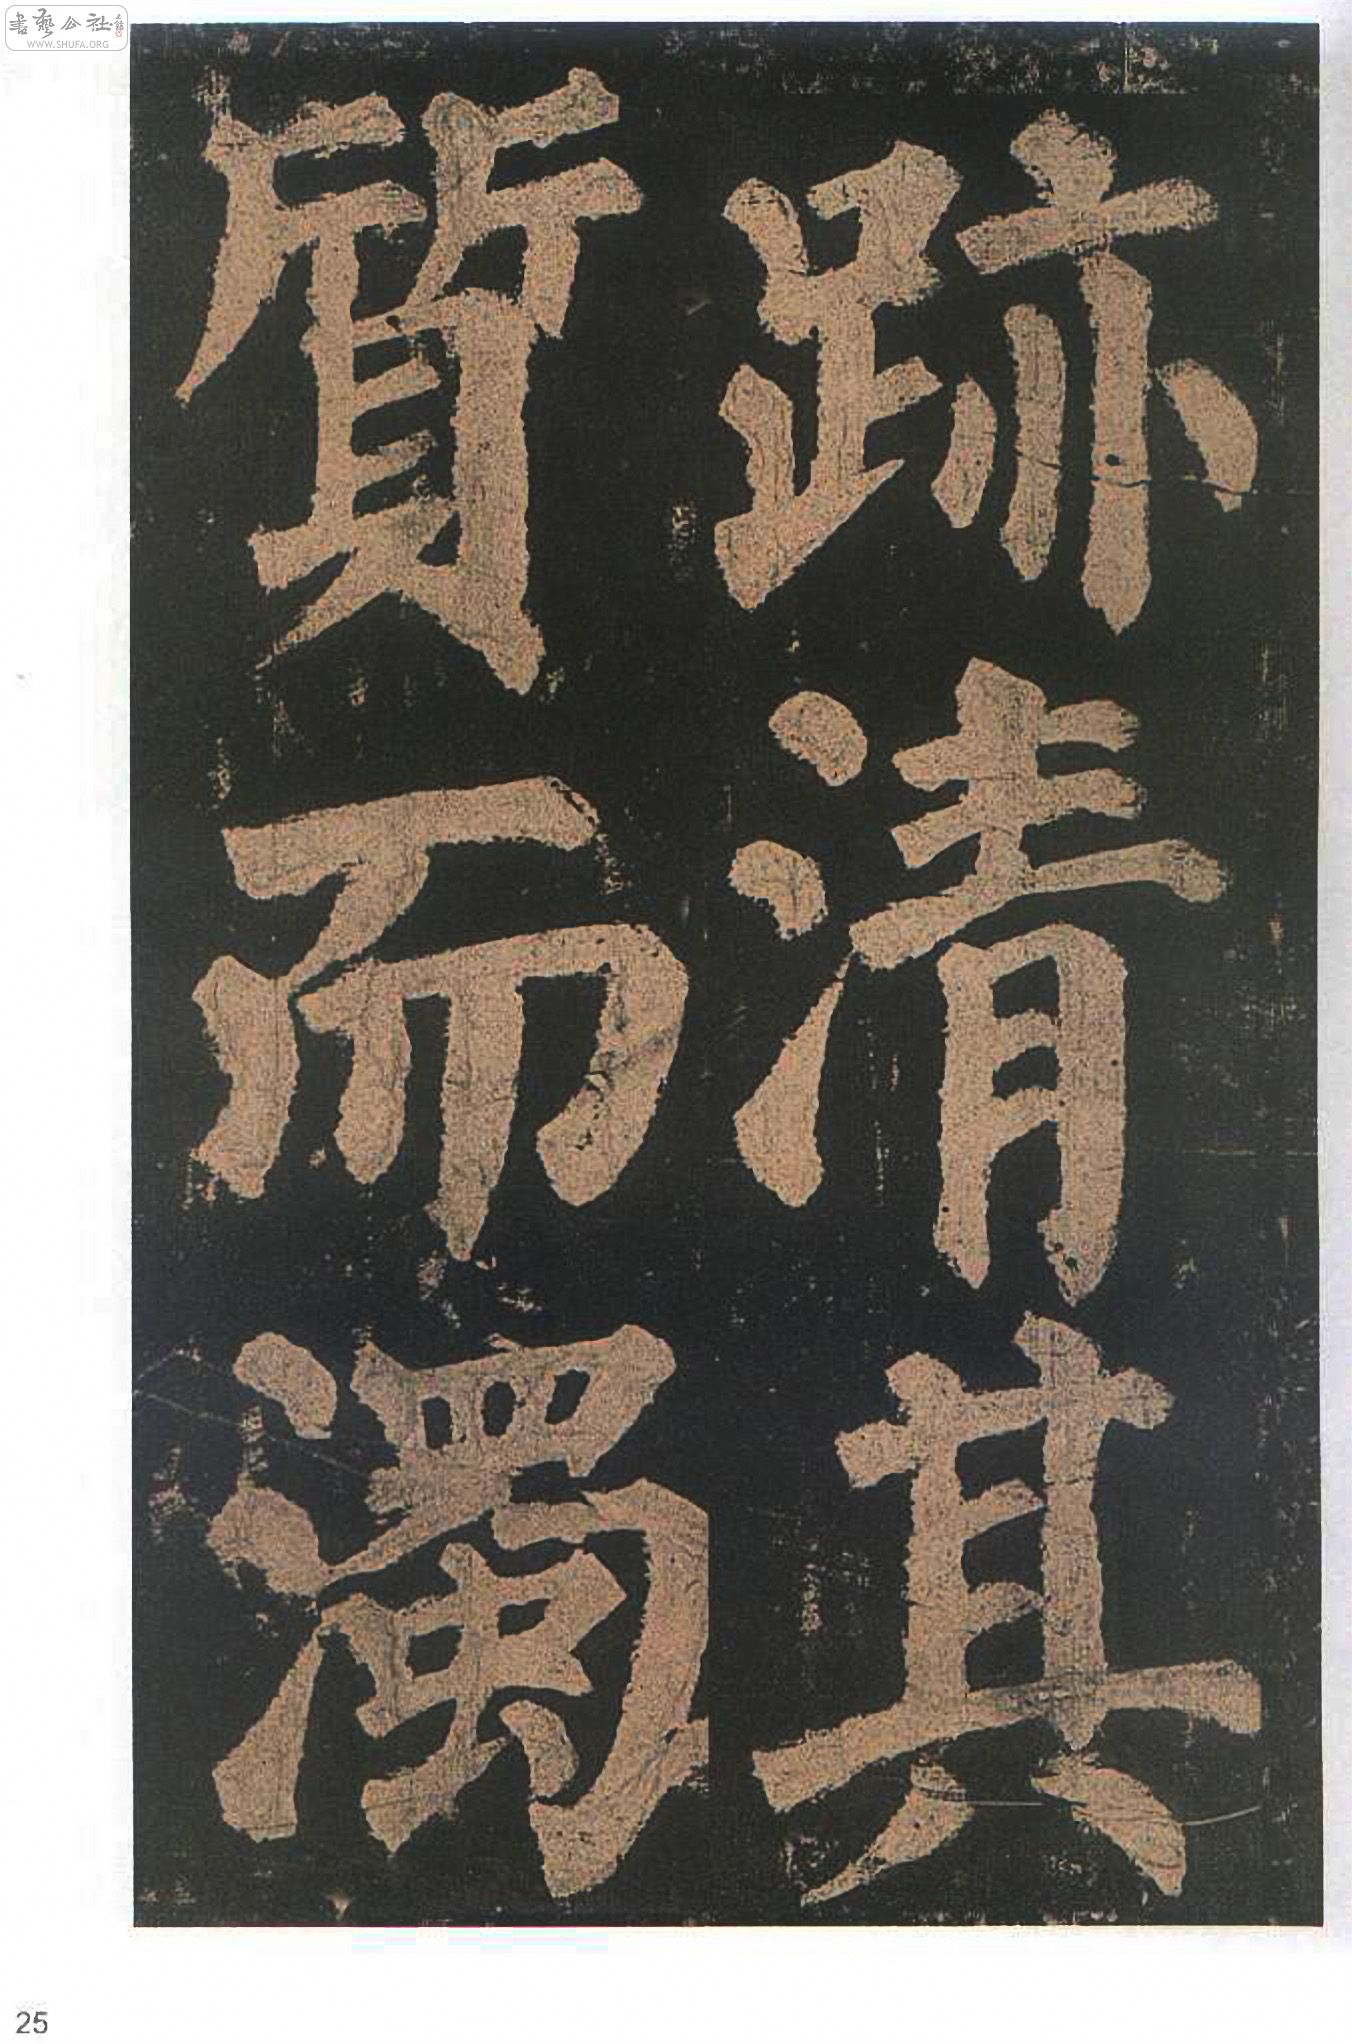 跡清其
質而濁
書藝公社
WWW.SHUFA.ORG
25